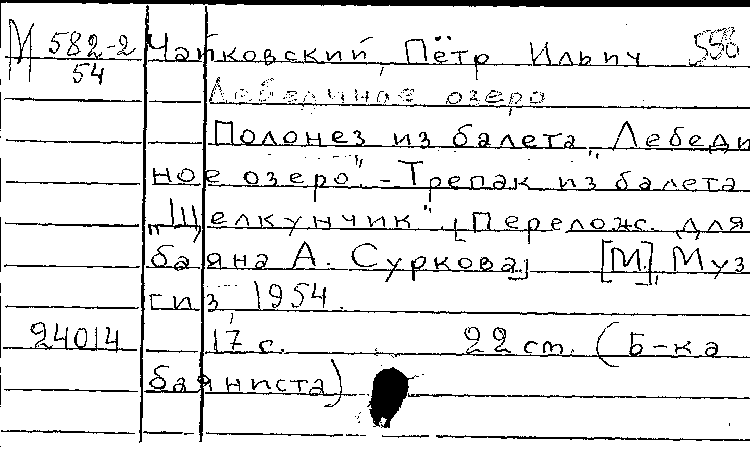 М 582-2 Чайковский, Пётр Ильич 558
54
Лебединое озеро
Полонез из балета „Лебеди
ное озеро". - Трепак из балета
„Щелкунчик". [Перелож. для
баяна А. Суркова] [М], Муз
гиз, 1954.
24014 17 с. 22 ст. (Б-ка
баяниста)